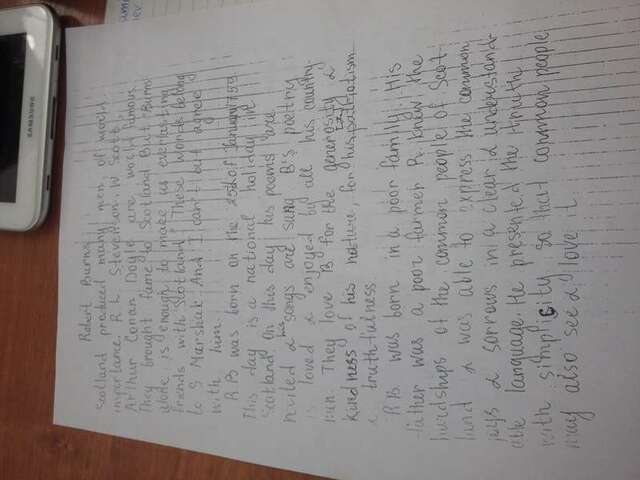 SAMSUNG
Robert Burns
Scotland produced many men of world
importance. R. L. Stevenson, W Scott,
Arthur Conan Doyle are world famous
They brought fame to Scotland But "Burns
alone is enough to make us everlasting
friends with Scotland". These words belong
to S Marshak. And I can't but agree
with him.
R.B was born on the 25th of January 1759
This day is a national holiday in
Scotland On this day his poems are
recited & his songs are sung B's poetry
is loved & enjoyed by all his country-
men. They love B for the generosity &
kindness of his nature, for his patriotism
& truthfulness
R.B. was born in a poor family. His
father was a poor farmer R. knew the
hardships of the common people of Scot-
land & was able to express the common
joys & sorrows in a clear & understand-
able language. He presented the truth
with simplicity so that common people
may also see & love it.